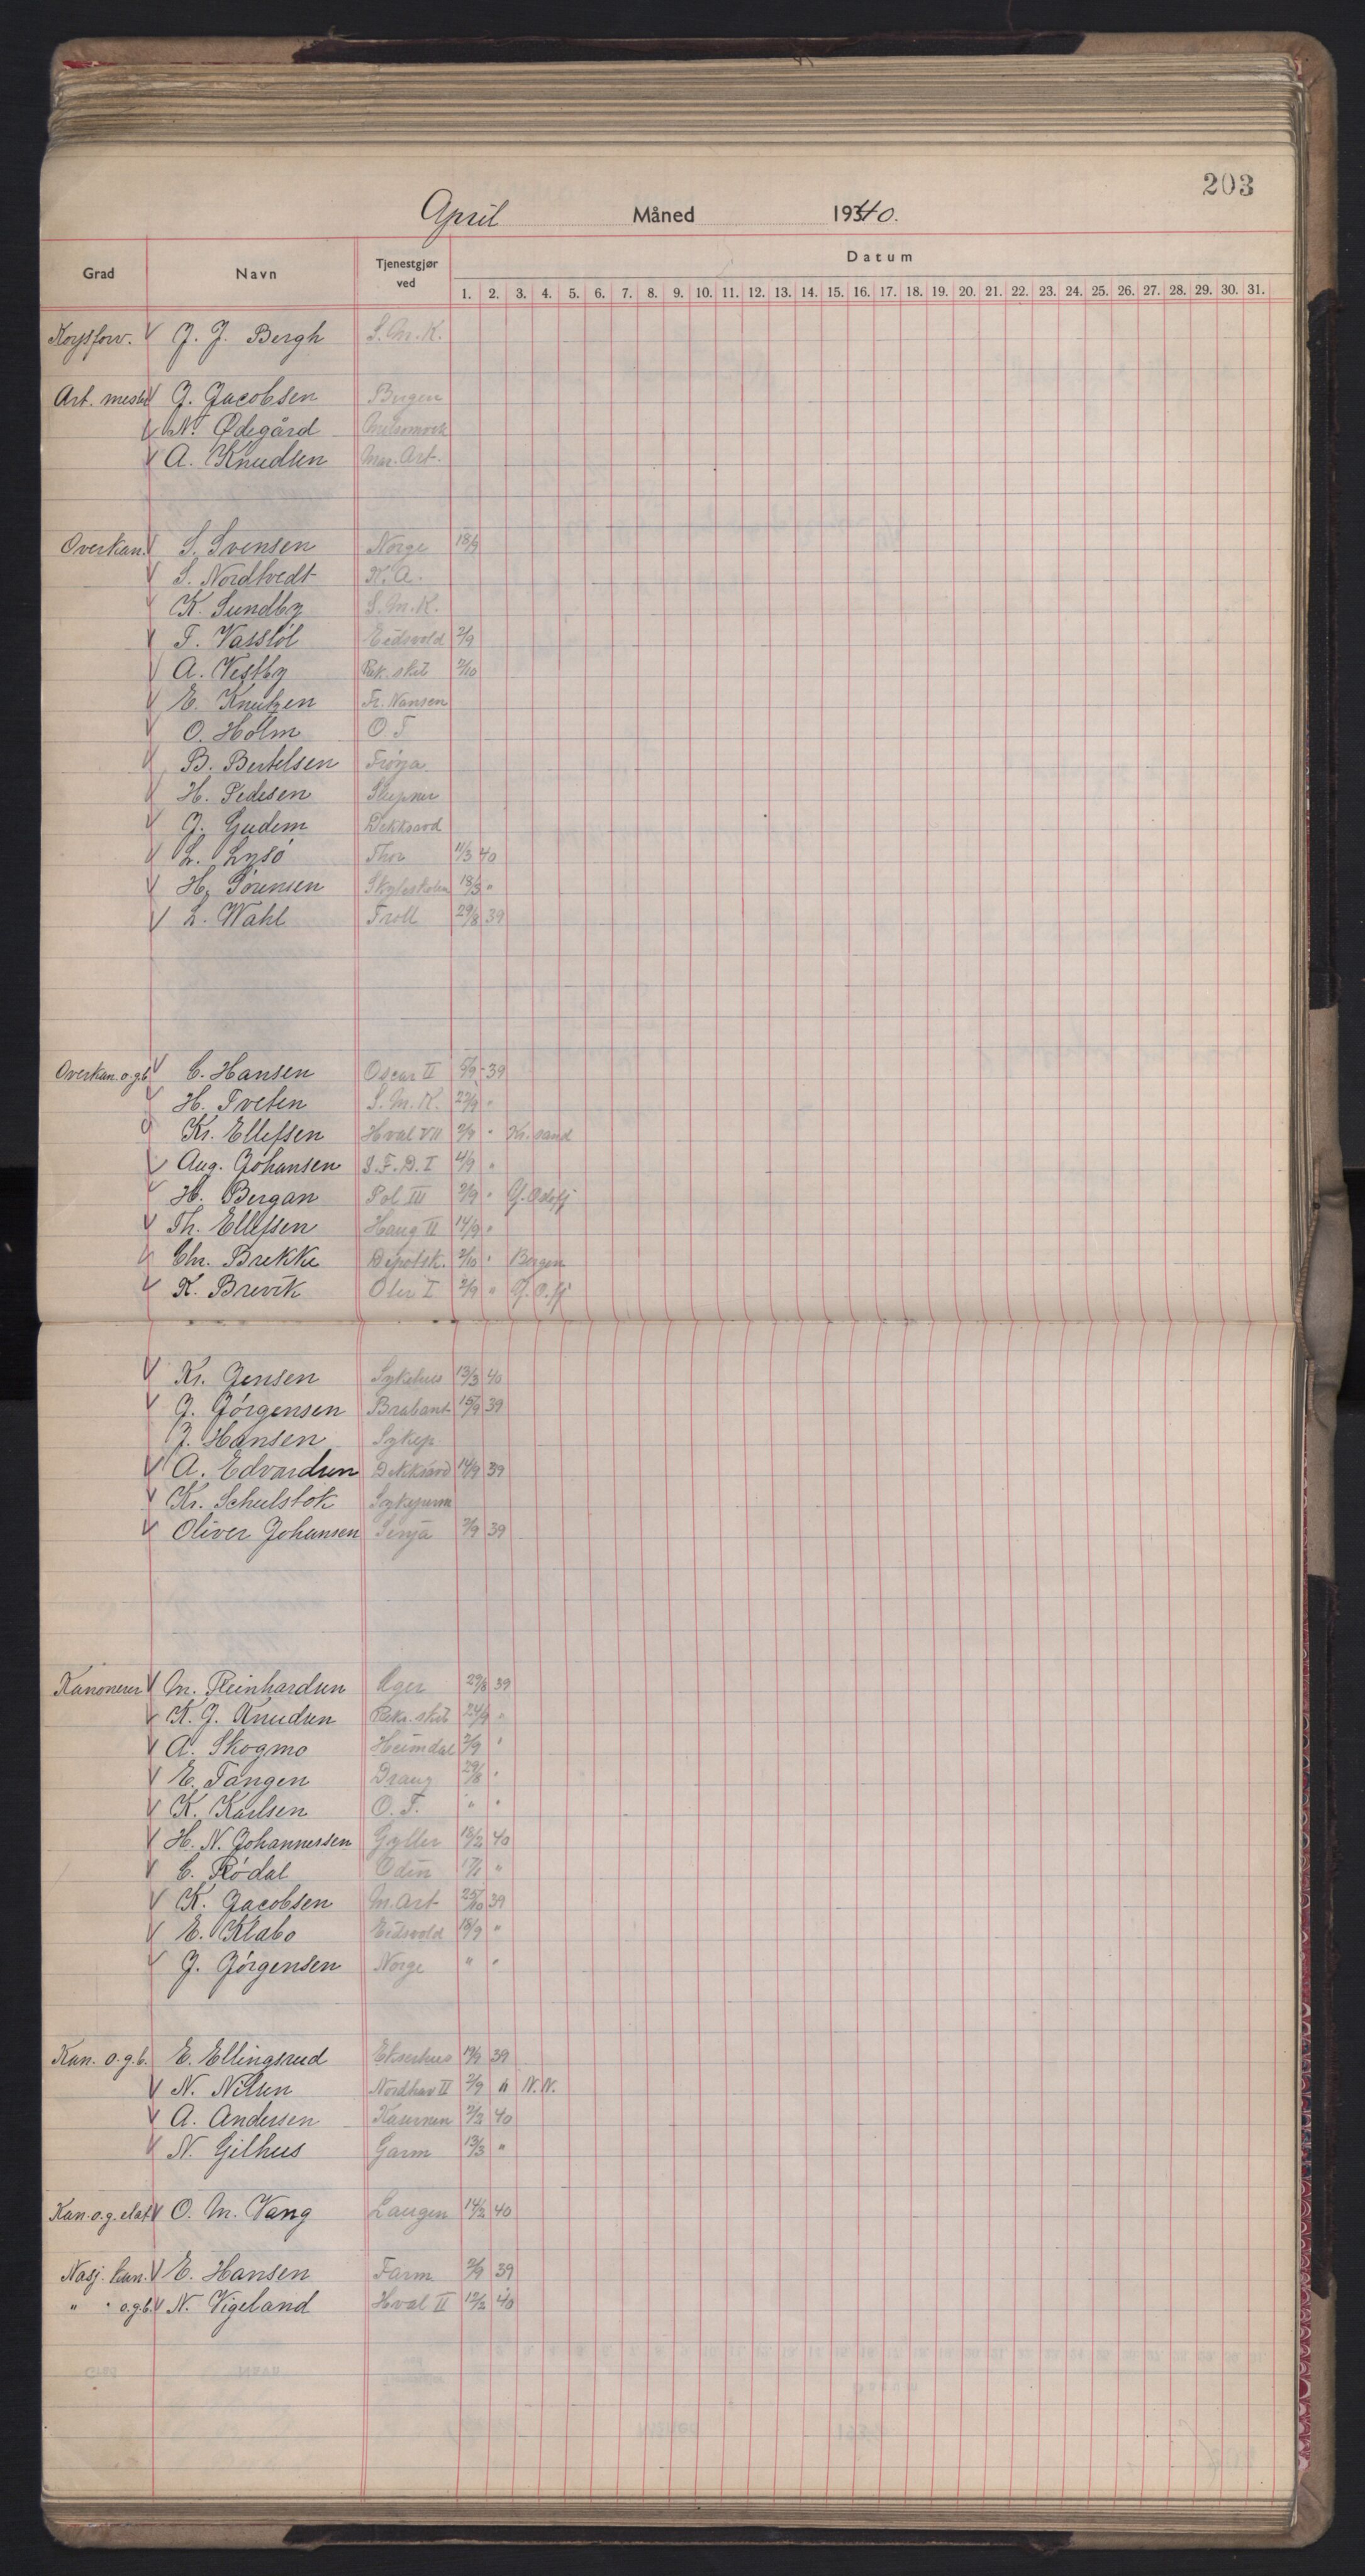 203
April Måned 1940.
Grad Navn Tjenestgjør ved Datum
1. 2. 3. 4. 5. 6. 7. 8. 9. 10. 11. 12. 13. 14. 15. 16. 17. 18. 19. 20. 21. 22. 23. 24. 25. 26. 27. 28. 29. 30. 31.
J. J. Bergh S.M.K.
Art. mester J. Jacobsen Bergen
N. Ødegård
A. Knudsen Mar. Art.
Overkan. S. Svensen Norge 18/9
S. Nordtvedt K.A.
K. Sundby S.M.K.
T. Vasstøl Eidsvold 2/9
A. Vestby Rek. skib 2/10
E. Knutzen Fr. Nansen
O. Holm O T
B. Bertelsen Frøya
H. Pedesen Sleipner
J. Gudem
L. Lysø Thor 11/3 40
H. Sørensen 18/3 "
L. Wahl Troll 29/8 39
Overkan. o.g.b. C. Hansen Oscar II 5/9 - 39
H. Tveten S.M.K. 22/9 "
Kr. Ellefsen Hval VII 2/9 " Kr. sand
Aug. Johansen S.F.D. I 4/9 "
H. Bergan Pol III 2/9 "
Th. Ellefsen Haug II 14/9 "
Chr. Brekke Depotsk. 2/10 " Bergen
K. Brevik Oter I 2/9 "
Kr. Jensen Sykehus 13/3 40
J. Jørgensen Brabant 15/9 39
J. Hansen Sykep
A. Edvardsen 14/9 39
Kr. Schulstok
Oliver Johansen Senja 2/9 39
Kanonerer M. Reinhardsen Æger 29/8 39
K. J. Knudsen Rekr. skib 24/9 "
A. Skogmo Heimdal 2/9 "
E. Tangen Draug 29/8 "
K. Karlsen O. T. " "
H. N. Johannessen Gyller 18/2 40
C. Rødal Odin 17/1 "
K. Jacobsen M. Art 25/10 39
E. Klabo Eidsvold 18/9 "
J. Jørgensen Norge " "
Kan. o.g.b. E. Ellingsrud Ekserhus 19/9 39
N. Nilsen Nordhav II 2/9 " N.N.
A. Andersen Kasernen 2/2 40
N. Gilhus Garm 13/3 "
Kan. o.g. elat O. M. Vang Laugen 14/2 40
Nasj. kan. E. Hansen Farm 2/9 39
" " o.g.b. N. Vigeland Hval II 12/2 40